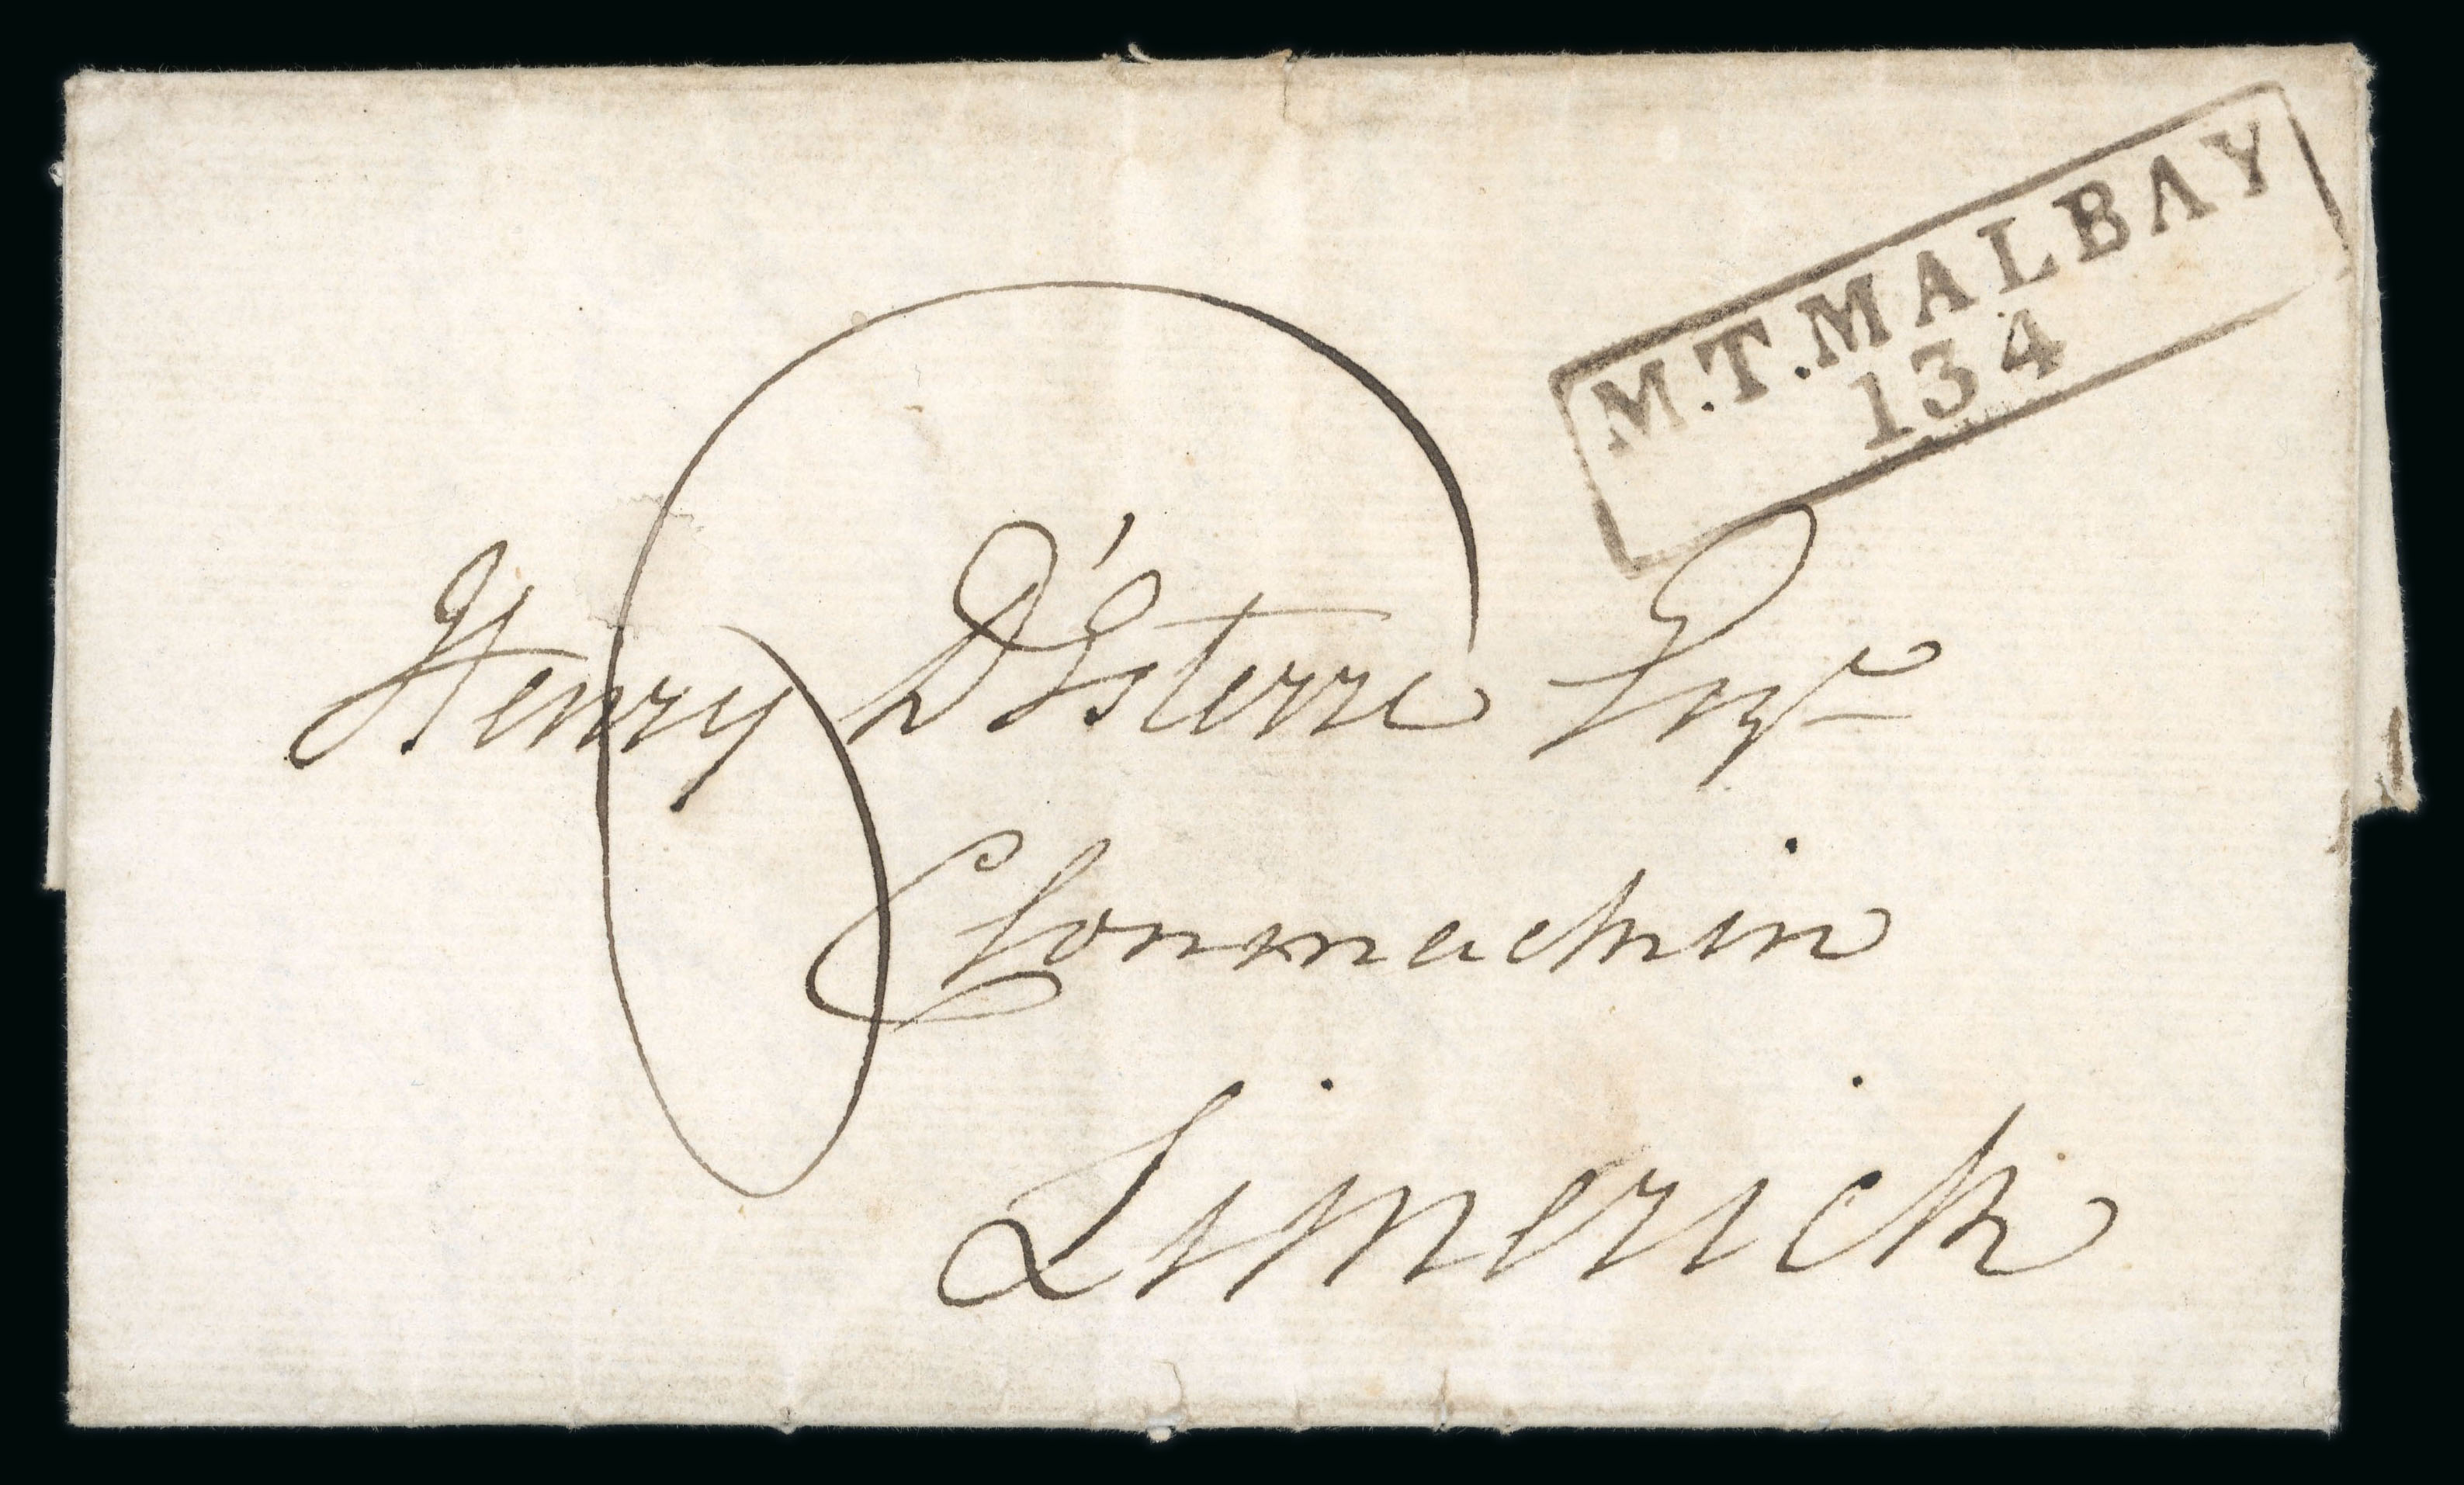 M.T.MALBAY
134
Henry D'Esterre Esqre
Clonmackin
Limerick